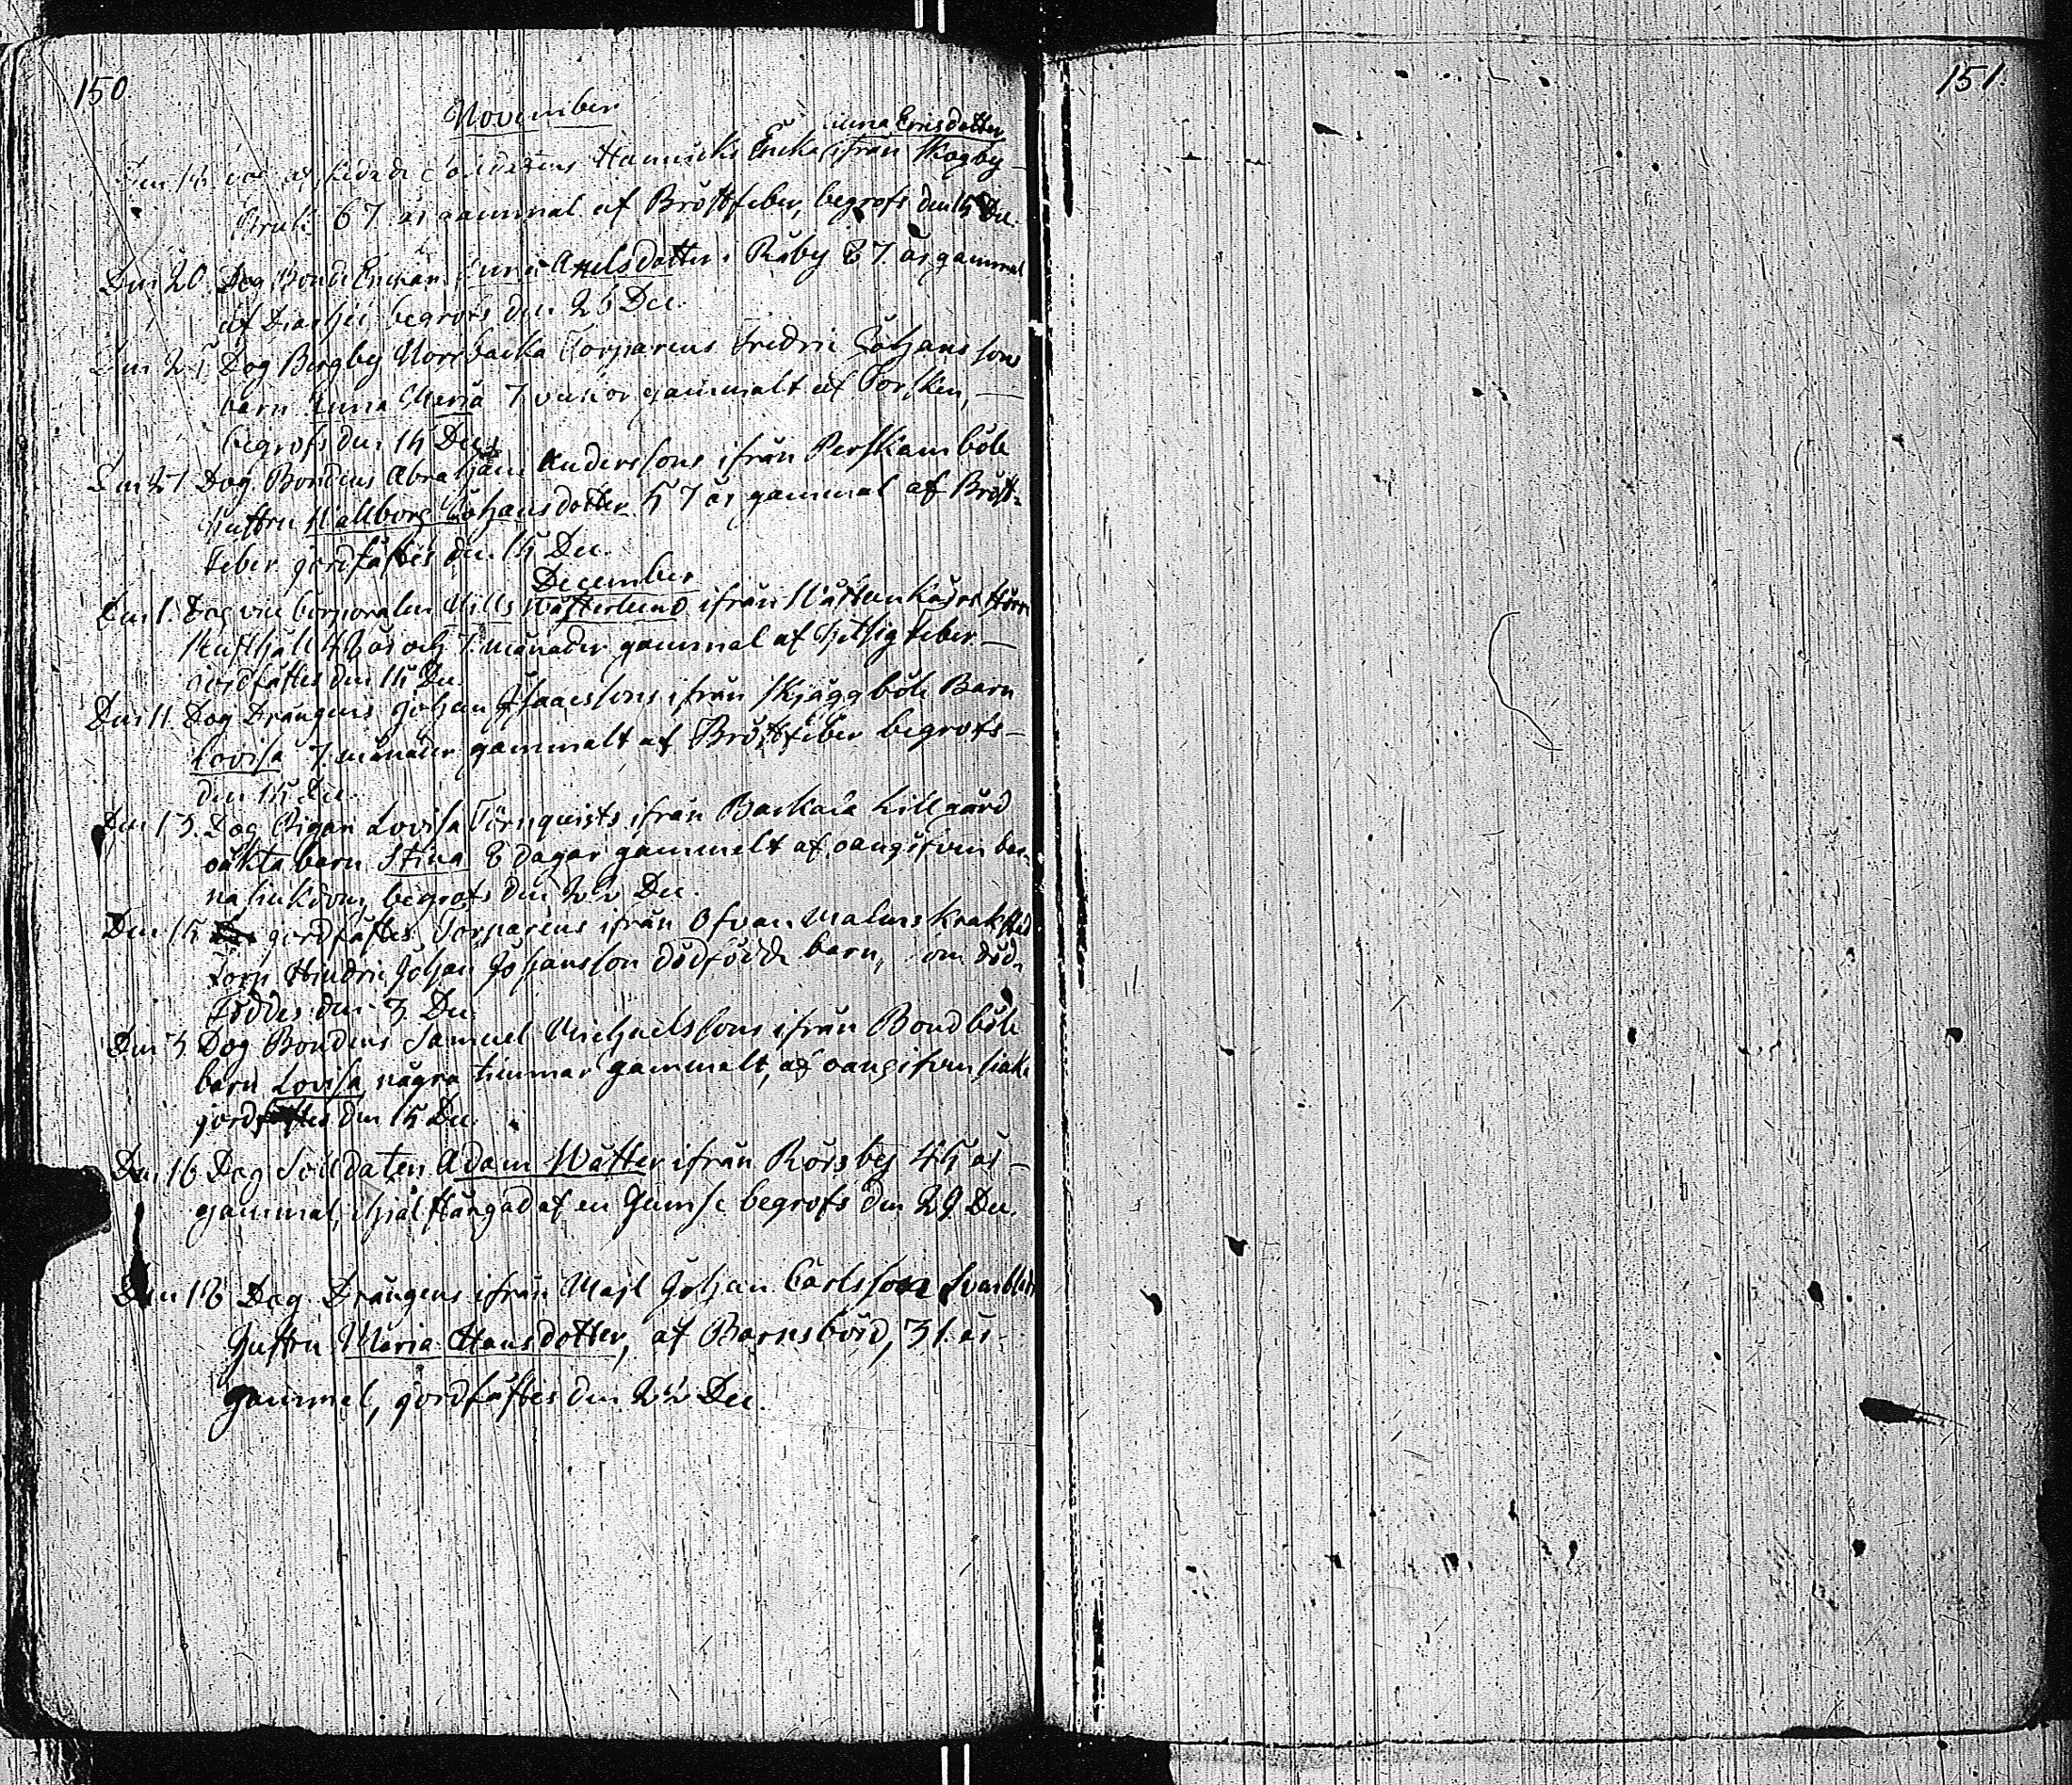 150
151.
November
Anna Ericsdotter
Den 18 Dog afskedade Soldatens Hannicks Enka ifrån Skogby
Bruk 67 år gammal af Bröstfeber, begrofs den 15 Dec.
Den 20. Dog Bonde Enckan Anna Axelsdotter i Råby 87. år gammal
af begrofs den 26 Dec.
Den 25 Dog Bergby Norrbacka Torparens Fredric Johanssons
barn Anna Maria 7 veckor gammalt af Torsken,
begrofs den 15 Dec.
Den 27 Dog Bondens Abraham Anderssons ifrån Perskamböle
hustru Wallborg Johansdotter 57 år gammal af Bröst-
feber jordfästes den 15 Dec.
December
Den 1. Dog vice Corporalen Nills Wätterlund ifrån
och 7. månader gammal af hetsig feber
jordfästes den 15 Dec.
Den 11. Dog Drängens Johan Isaacssons ifrån Skjäggböle Barn
Lovisa 7. månader gammalt af Bröstfeber begrofs
den 15 Dec.
Den 13. Dog Pigan Lovisa Törnquists ifrån Backada Lillgård
oäkta barn Stina 8 dagar gammalt af oangifven bar-
nasjukdom, begrofs den 22 Dec.
Den 15 jordfästes Torparens ifrån Ofvan Malms
Torp Hindric Johan Johansson dödfödde barn, som död-
föddes den 3 Dec
Den 3 Dog Bondens Samuel Michaelssons ifrån Bondböle
barn Lovisa några timmar gammalt, af oangifven
jordfästes den 15 Dec.
Den 16 Dog Solldaten Adam Wätter ifrån Rörsby 45 år
gammal, ihjälstångad af en Gumse begrofs den 29 Dec.
Den 18 Dog Drängens ifrån Johan Carlssons
hustru Maria Hansdotter, af Barnsbörd, 31. år
gammal, jordfästes den 22 Dec.